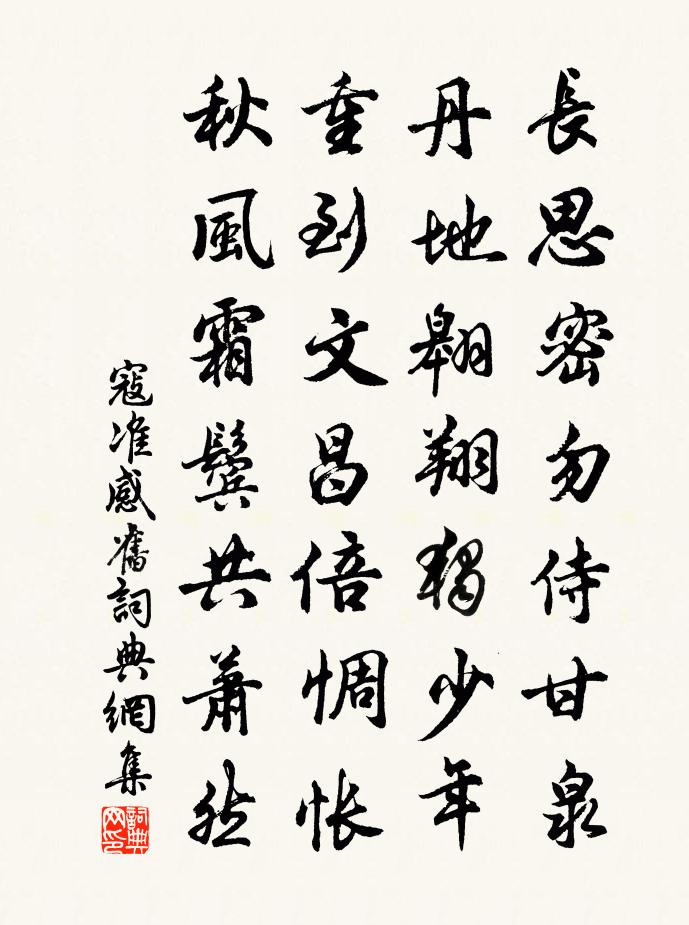 長思密勿侍甘泉
丹地翱翔獨少年
重到文昌倍惆悵
秋風霜鬢共蕭然
寇准感舊詞典網集
詞典网印